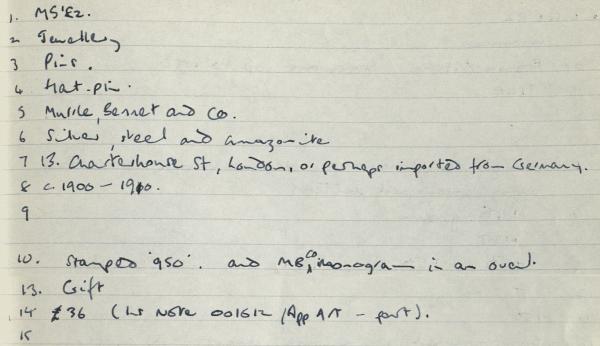 1. MS'E2.
2 Jewellery
3 Pins.
4 Hat-pin.
5 Murrle, Bennet and Co.
6 Silver, steel and amazonite
7 13. Charterhouse St, London, or perhaps imported from Germany.
8 c. 1900 – 1910.
9
10. Stamped '950'. and MB CO monogram in an oval.
13. Gift
14 £36 (Note 001612 (App Art – part).
15